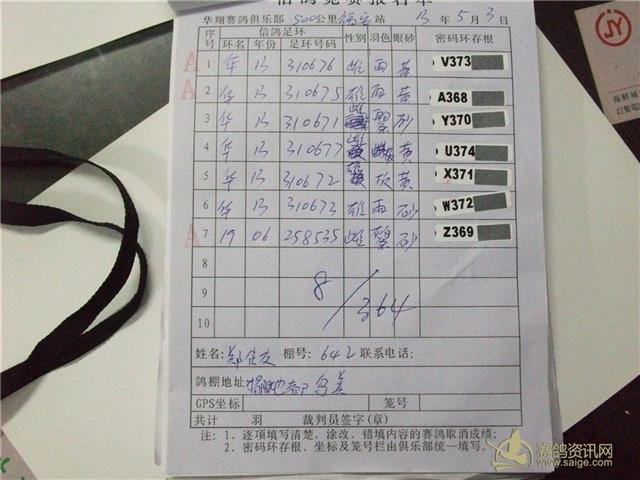 信鸽竞赛报名单
华翔赛鸽俱乐部 500公里 站 13年5月3日
序号 信鸽足环 性别 羽色 眼砂 密码环存根
环名 年份 足环号码
A 1 华 13 310676 雌 雨 黄 V373
A 2 华 13 310675 雄 雨 黄 A368
3 华 13 310671 雌 砂 Y370
4 华 13 310677 雌 黄 U374
5 华 13 310672 雄 灰 黄 X371
6 华 13 310673 雄 雨 砂 W372
A 7 19 06 258535 雌 砂 Z369
8
9
10
8/364
姓名: 郑 棚号: 642 联系电话:
鸽棚地址
GPS坐标 笼号
共计 羽 裁判员签字(章)
注: 1、逐项填写清楚,涂改、错填内容的赛鸽取消成绩;
2、密码环存根、坐标及笼号栏由俱乐部统一填写。
JY
海鲜城
订餐电
赛鸽资讯网
www.saige.com